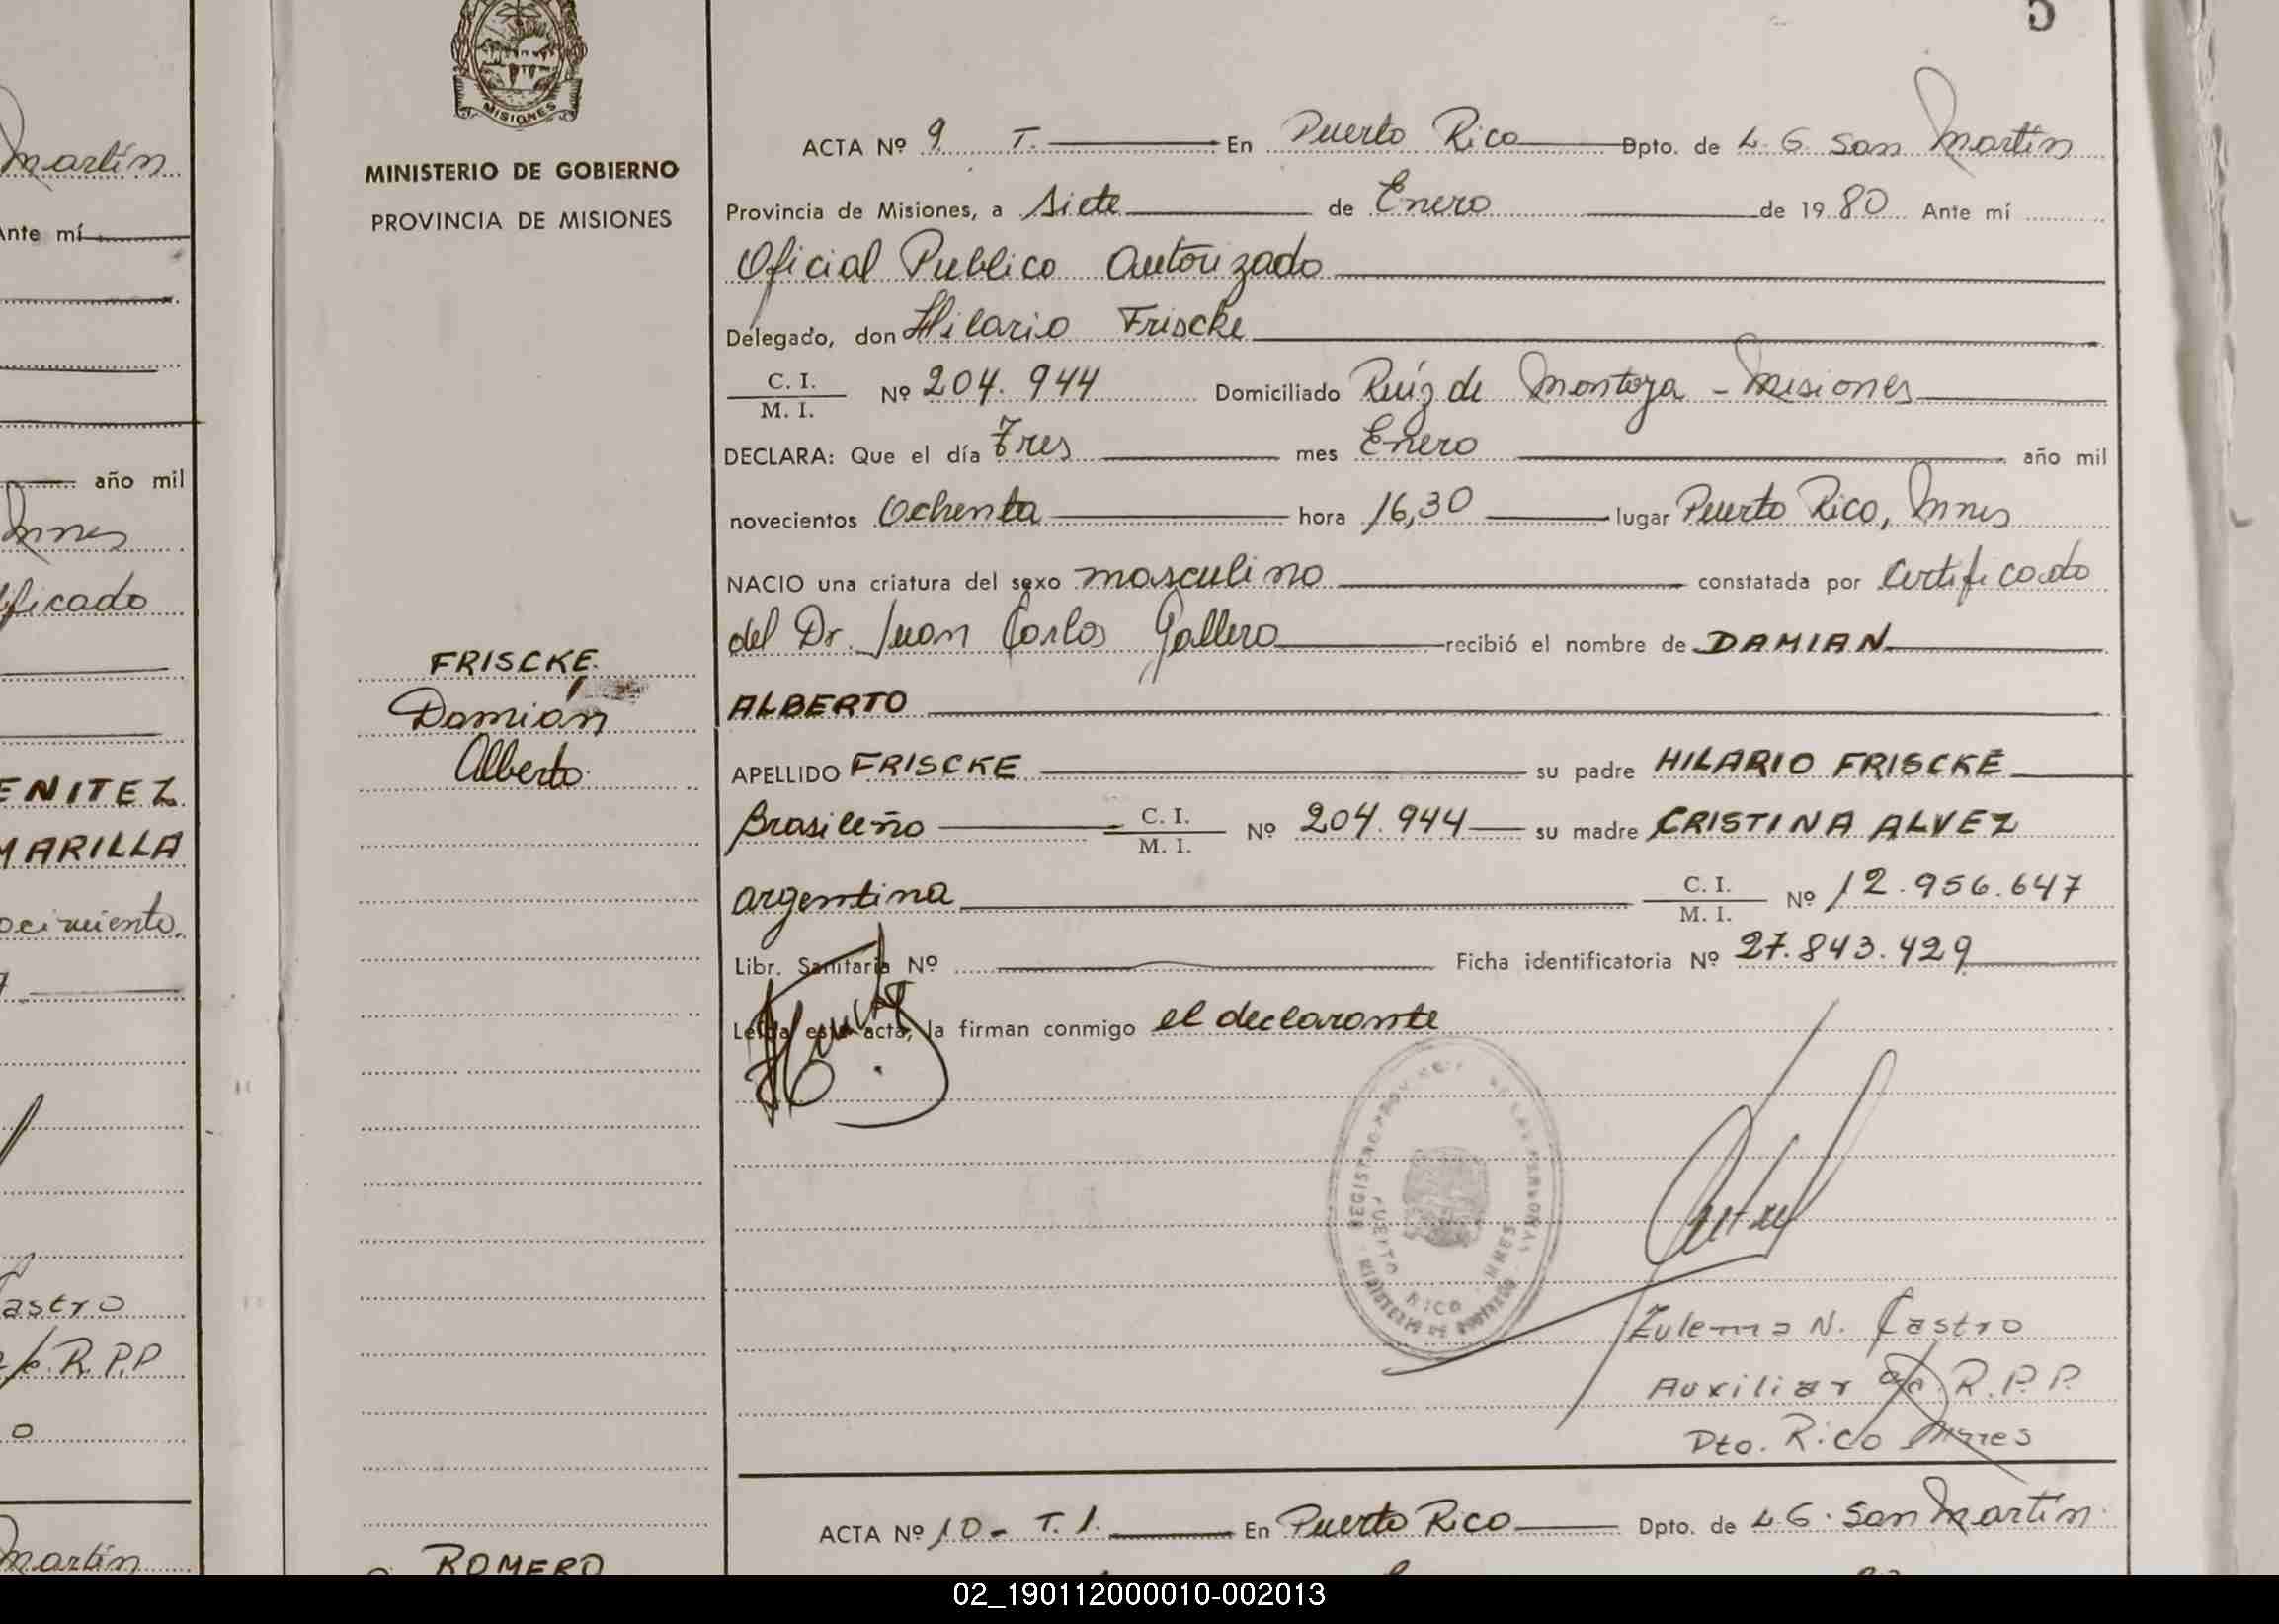 5
martín
Ante mí
año mil
Mnes
ificado
ENITEZ
MARILLA
ocimiento.
astro
R.P.P
o
martín
MISIONES
MINISTERIO DE GOBIERNO
PROVINCIA DE MISIONES
FRISCKE.
Damián
Alberto.
ROMERO
ACTA Nº 9 T. En Puerto Rico Dpto. de L. G. San Martín
Provincia de Misiones, a siete de Enero de 1980 Ante mí
Oficial Publico Autorizado
Delegado, don Hilario Friscke
C. I. / M. I. Nº 204.944 Domiciliado Ruíz de Montoya - Misiones
DECLARA: Que el día Tres mes Enero año mil
novecientos Ochenta hora 16,30 lugar Puerto Rico, Mnes
NACIO una criatura del sexo masculino constatada por Certificado
del Dr. Juan Carlos Gallero recibió el nombre de DAMIAN
ALBERTO
APELLIDO FRISCKE su padre HILARIO FRISCKE
Brasileño C. I. / M. I. Nº 204.944 su madre CRISTINA ALVEZ
argentina C. I. / M. I. Nº 12.956.647
Libr. Sanitaria Nº Ficha identificatoria Nº 27.843.429
Leída esta acta, la firman conmigo el declarante
REGISTRO PROV. DE LAS PERSONAS
PUERTO RICO MNES
MINISTERIO DE GOBIERNO
Zulema N. Castro
Auxiliar a/c. R.P.P.
Pto. Rico Mnes
ACTA Nº 10- T. 1. En Puerto Rico Dpto. de L G. San Martín
02_190112000010-002013